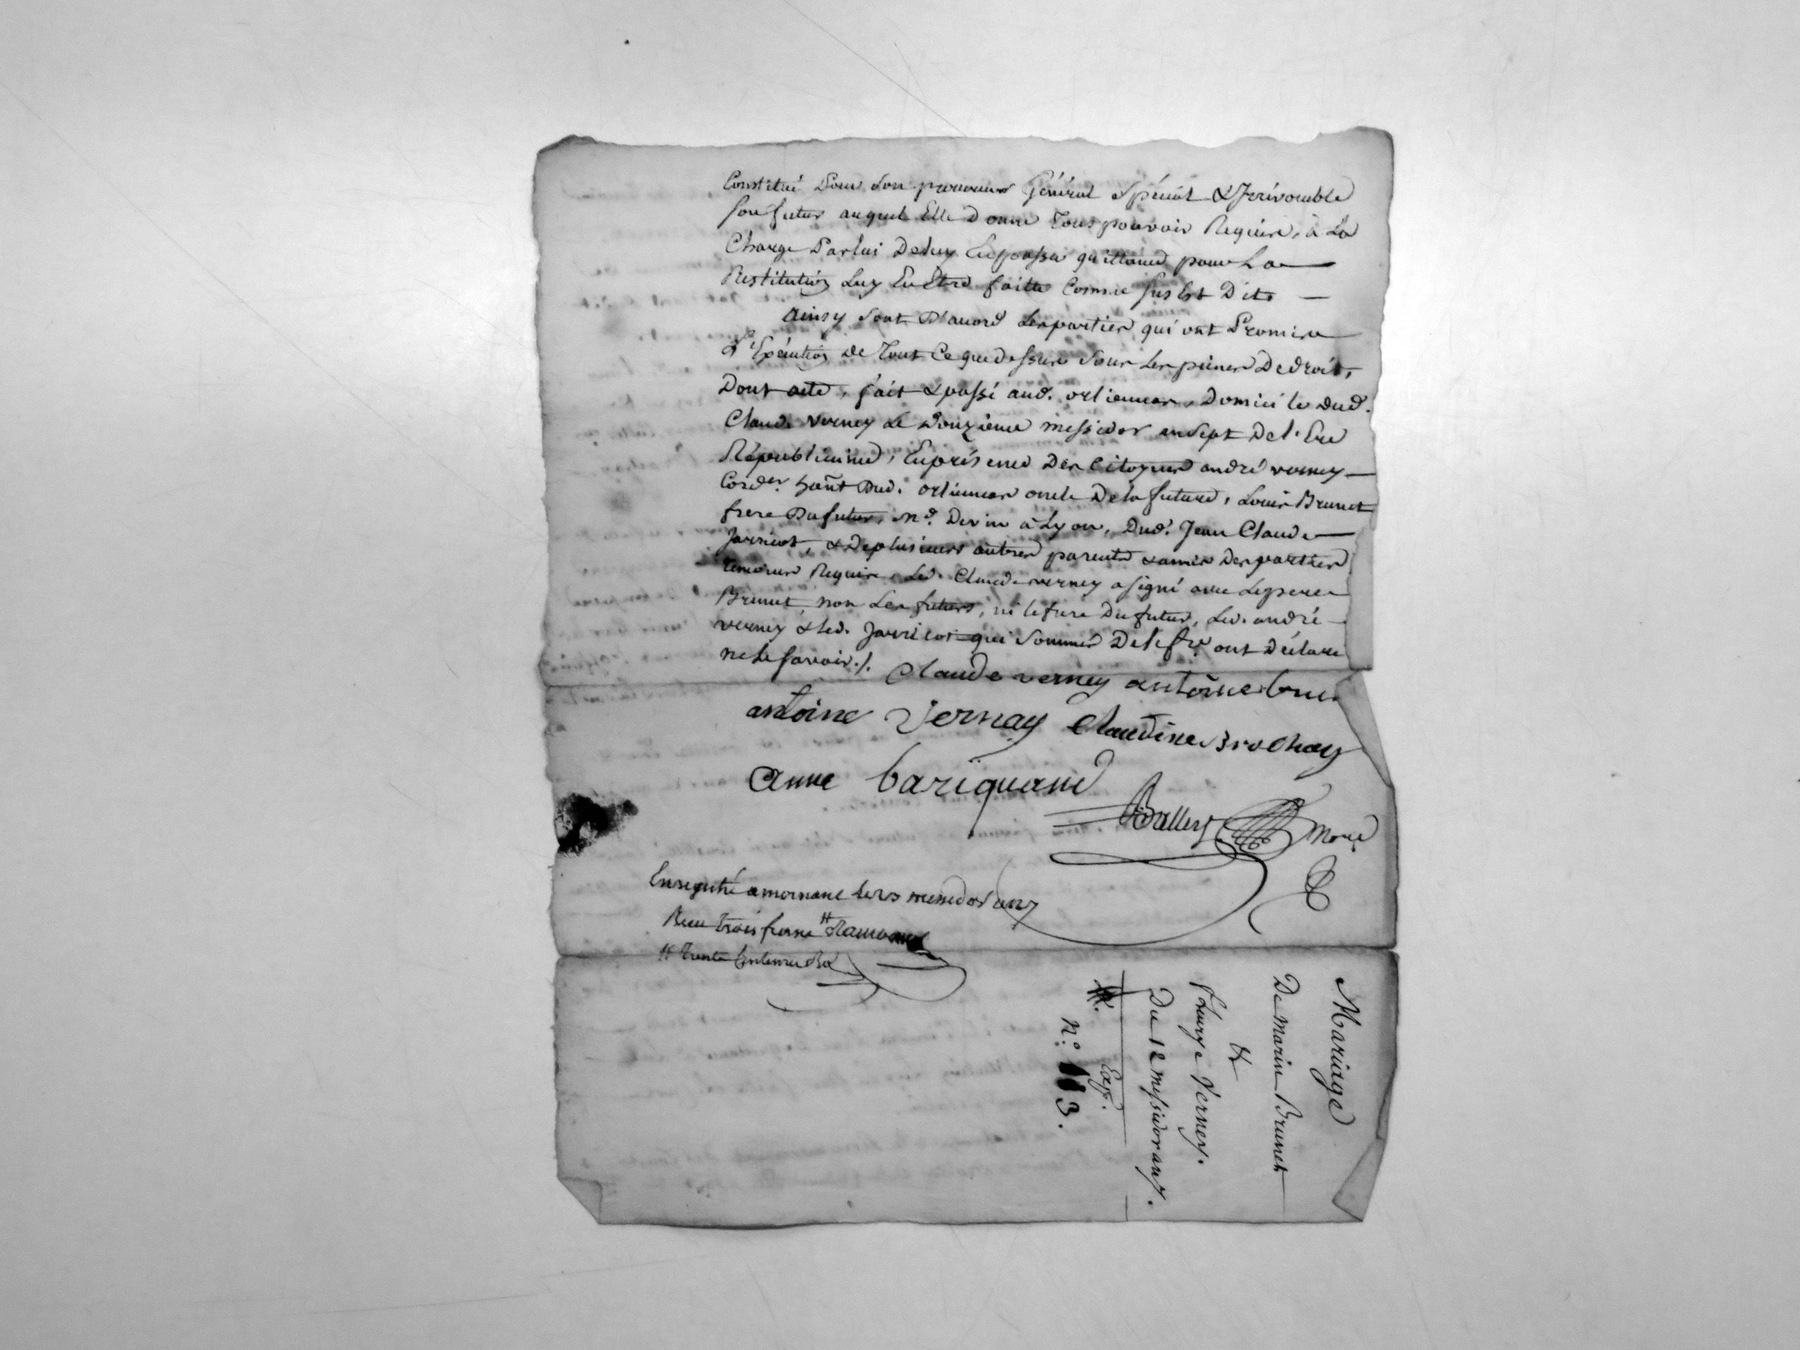 Constitué Pour Son procureur Général Spécial & Irrévocable
son futur auquel Elle Donne Tous pouvoir Requis, à La
Charge Par lui De luy En passer quittance pour La
Restitution Luy En Etre faitte Comme sus Est Dit.
Ainsy Sont D'acord Les parties qui ont Promis
L'Exécution De Tout Ce que dessus Sous Les peines De droit,
Dont acte, fait & passé aud. orlienas, Domicile dud.
Claude verney Le Douzième messidor an sept De l'Ere
Républicaine, En présence Des Citoyens andré verney
Cord.er hant Dud. orlienas oncle De la future, Louis Brunet
frere Du futur, m.d De vin à Lyon, Dud. Jean Claude
Jarricot, & De plusieurs autres parents & amis Des parties
Requis, Led. Claude verney a signé avec Le pere
Brunet, non Les futurs, ni le frere Du futur, Led. andré
verney & Led. Jarricot qui Sommés De le f.re ont Déclaré
ne Le savoir ./.
Claude verney antoine brun
antoine Vernay Claudine Brochay
anne bariquand
Ballet Not.re
Enregistré a mornant le 13 messidor an 7
Reçu trois francs
trente centimes
Mariage
De Marin Brunet
&
Verney.
Du 12 messidor an 7.
Exp.
n.° 113.